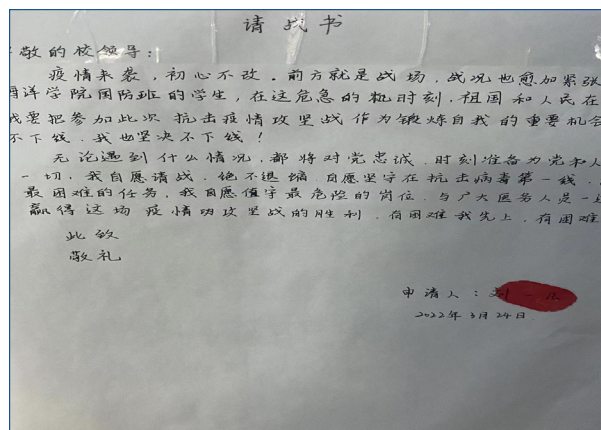 请战书
敬的校领导：
疫情来袭，初心不改。前方就是战场，战况也愈加紧张
海洋学院国防班的学生，在这危急的机时刻，祖国和人民在
我要把参加此次抗击疫情攻坚战作为锻炼自我的重要机会
不下线，我也坚决不下线！
无论遇到什么情况，都将对党忠诚，时刻准备为党和人
一切，我自愿请战，绝不退缩，自愿坚守在抗击病毒第一线，
最困难的任务，我自愿值守最危险的岗位，与广大医务人员一
赢得这场疫情攻坚战的胜利，有困难我先上，有困难
此致
敬礼
申请人：刘一
2022年3月24日